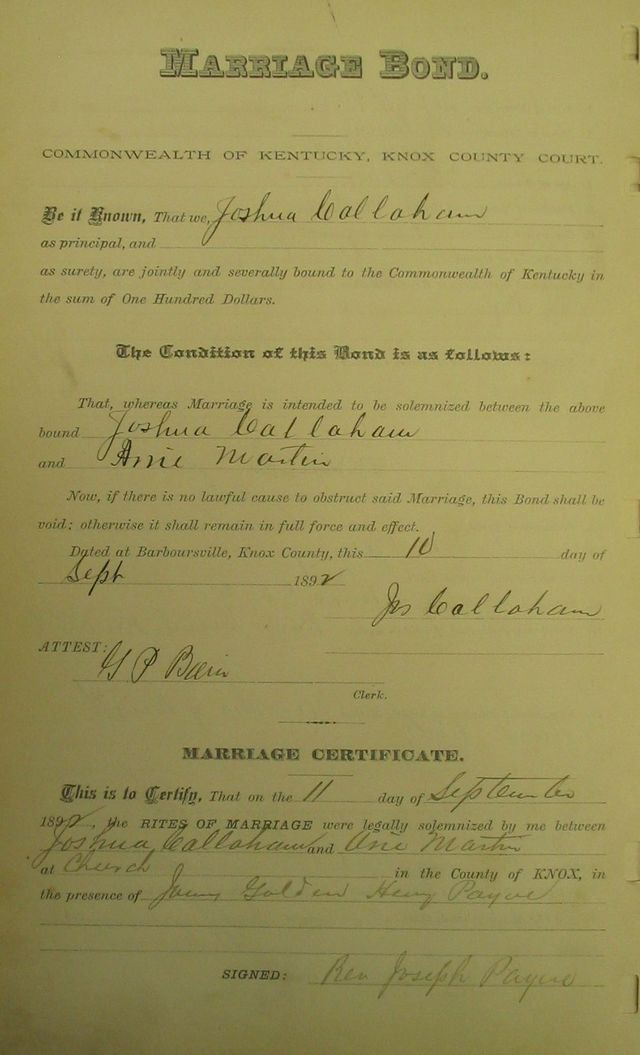 MARRIAGE BOND.
COMMONWEALTH OF KENTUCKY, KNOX COUNTY COURT.
Be it Known, That we, Joshua Callaham
as principal, and
as surety, are jointly and severally bound to the Commonwealth of Kentucky in
the sum of One Hundred Dollars.
The Condition of this Bond is as follows:
That, whereas Marriage is intended to be solemnized between the above
bound Joshua Callaham
and Martin
Now, if there is no lawful cause to obstruct said Marriage, this Bond shall be
void; otherwise it shall remain in full force and effect.
Dated at Barboursville, Knox County, this 10 day of
Sept 1892
Jos Callaham
ATTEST:
G P Bain
Clerk.
MARRIAGE CERTIFICATE.
This is to Certify, That on the 11 day of September
1892, the RITES OF MARRIAGE were legally solemnized by me between
Joshua Callaham and Martin
at Church in the County of KNOX, in
the presence of Golden Henry Payne
SIGNED: Rev Joseph Payne